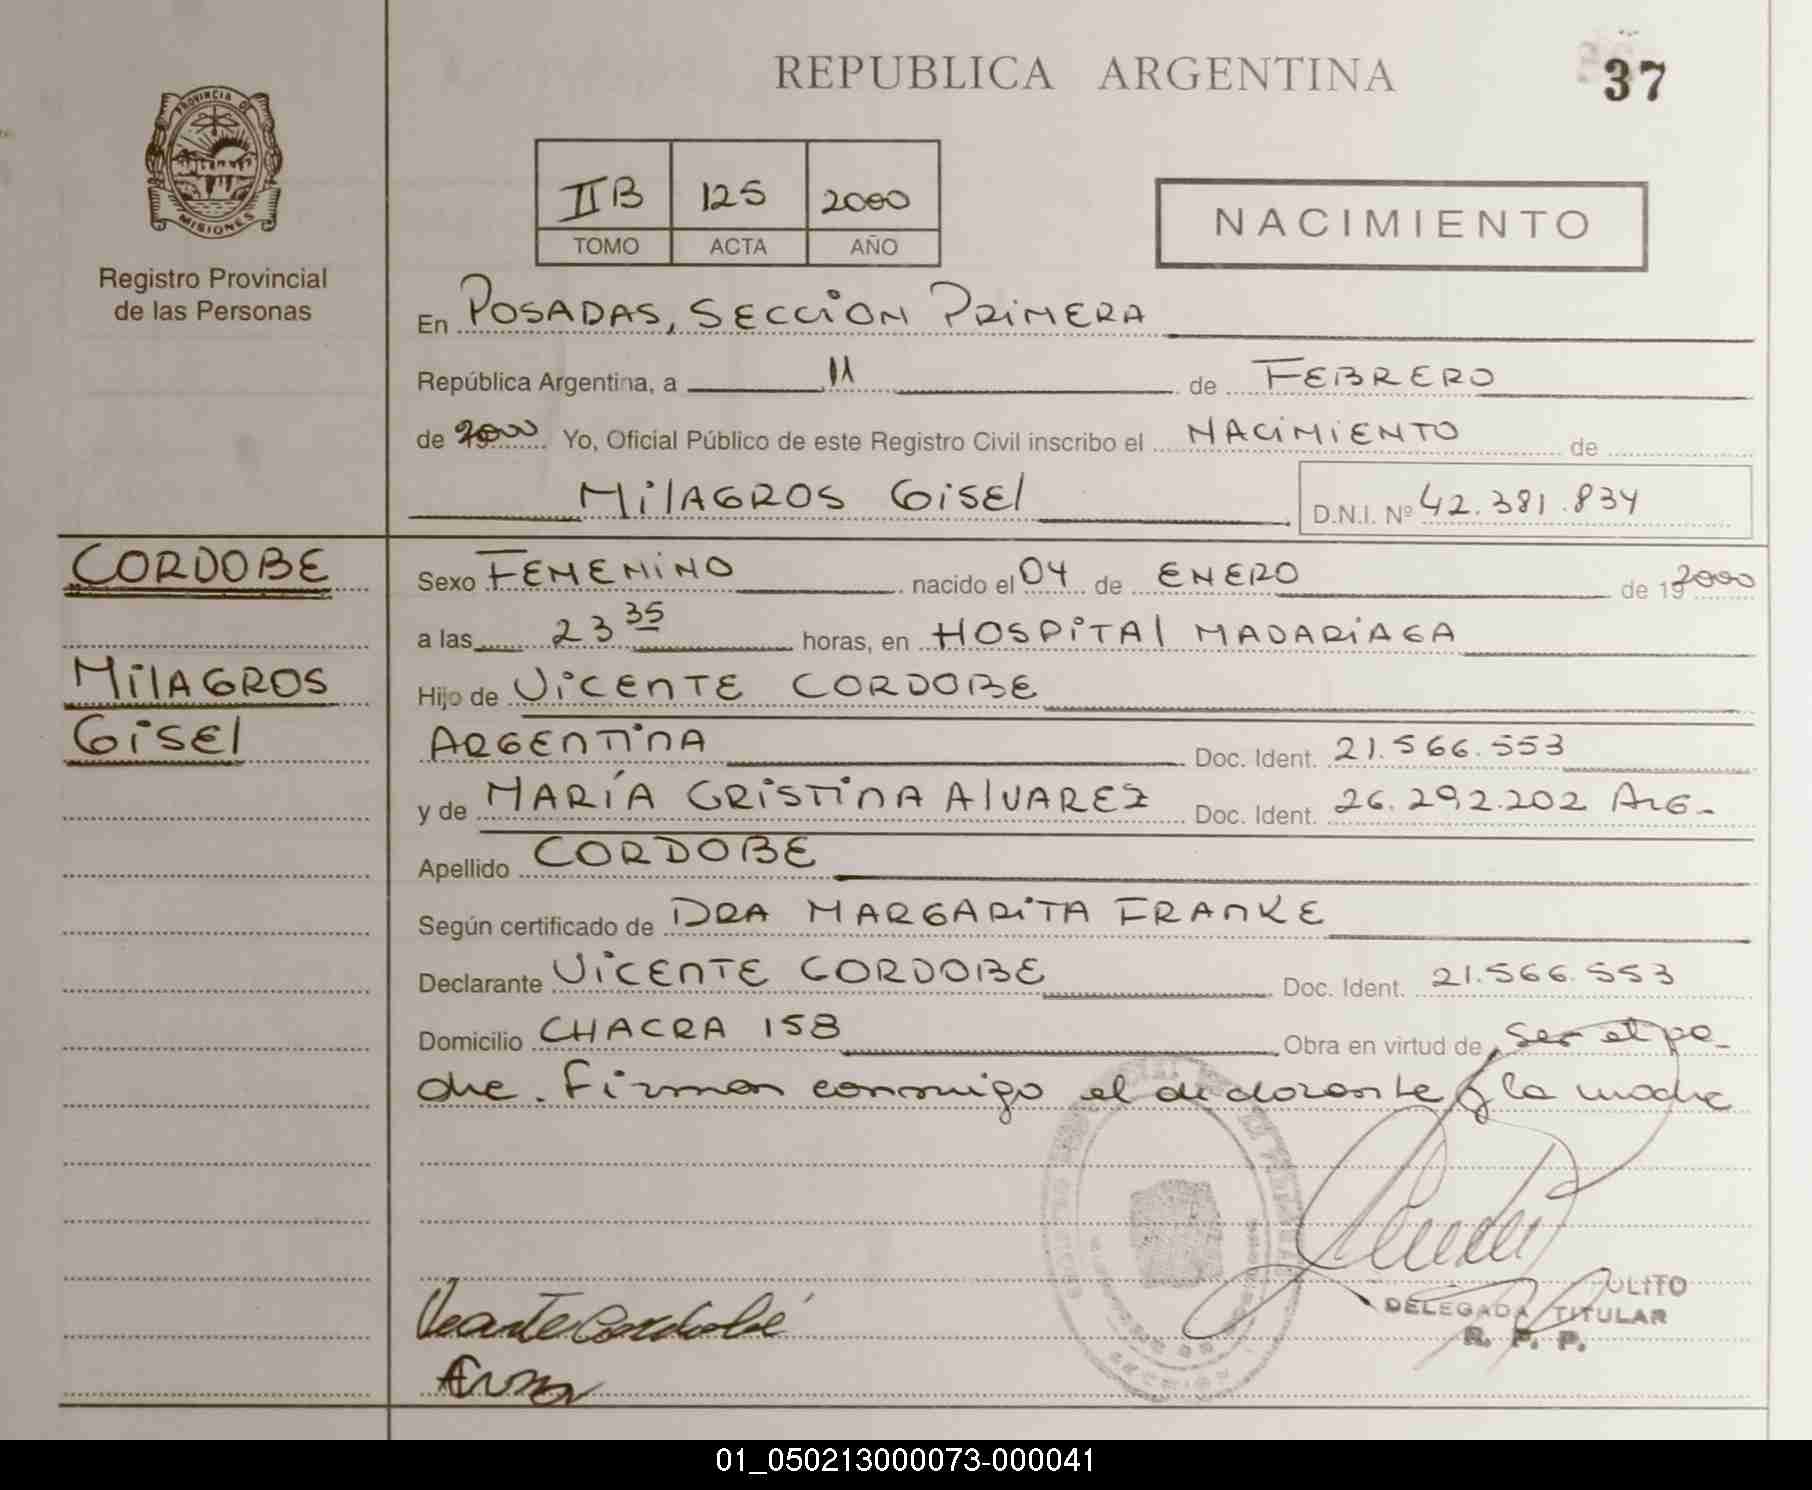 REPUBLICA ARGENTINA
37
PROVINCIA DE
MISIONES
Registro Provincial
de las Personas
IIB 125 2000
TOMO ACTA AÑO
NACIMIENTO
En POSADAS, SECCION PRIMERA
República Argentina, a 11 de FEBRERO
de 2000 Yo, Oficial Público de este Registro Civil inscribo el NACIMIENTO de
MILAGROS GISEL D.N.I. Nº 42.381.834
CORDOBE
Sexo FEMENINO nacido el 04 de ENERO de 19 2000
a las 23 35 horas, en HOSPITAL MADARIAGA
MILAGROS
Hijo de VICENTE CORDOBE
GISEL
ARGENTINA Doc. Ident. 21.566.553
y de MARÍA CRISTINA ALVAREZ Doc. Ident. 26.292.202 ARG-
Apellido CORDOBE
Según certificado de DRA MARGARITA FRANKE
Declarante VICENTE CORDOBE Doc. Ident. 21.566.553
Domicilio CHACRA 158 Obra en virtud de ser el pa-
dre. Firman conmigo el declarante y la madre
ULITO
DELEGADA TITULAR
R. P. P.
Vicente Cordobé
01_050213000073-000041